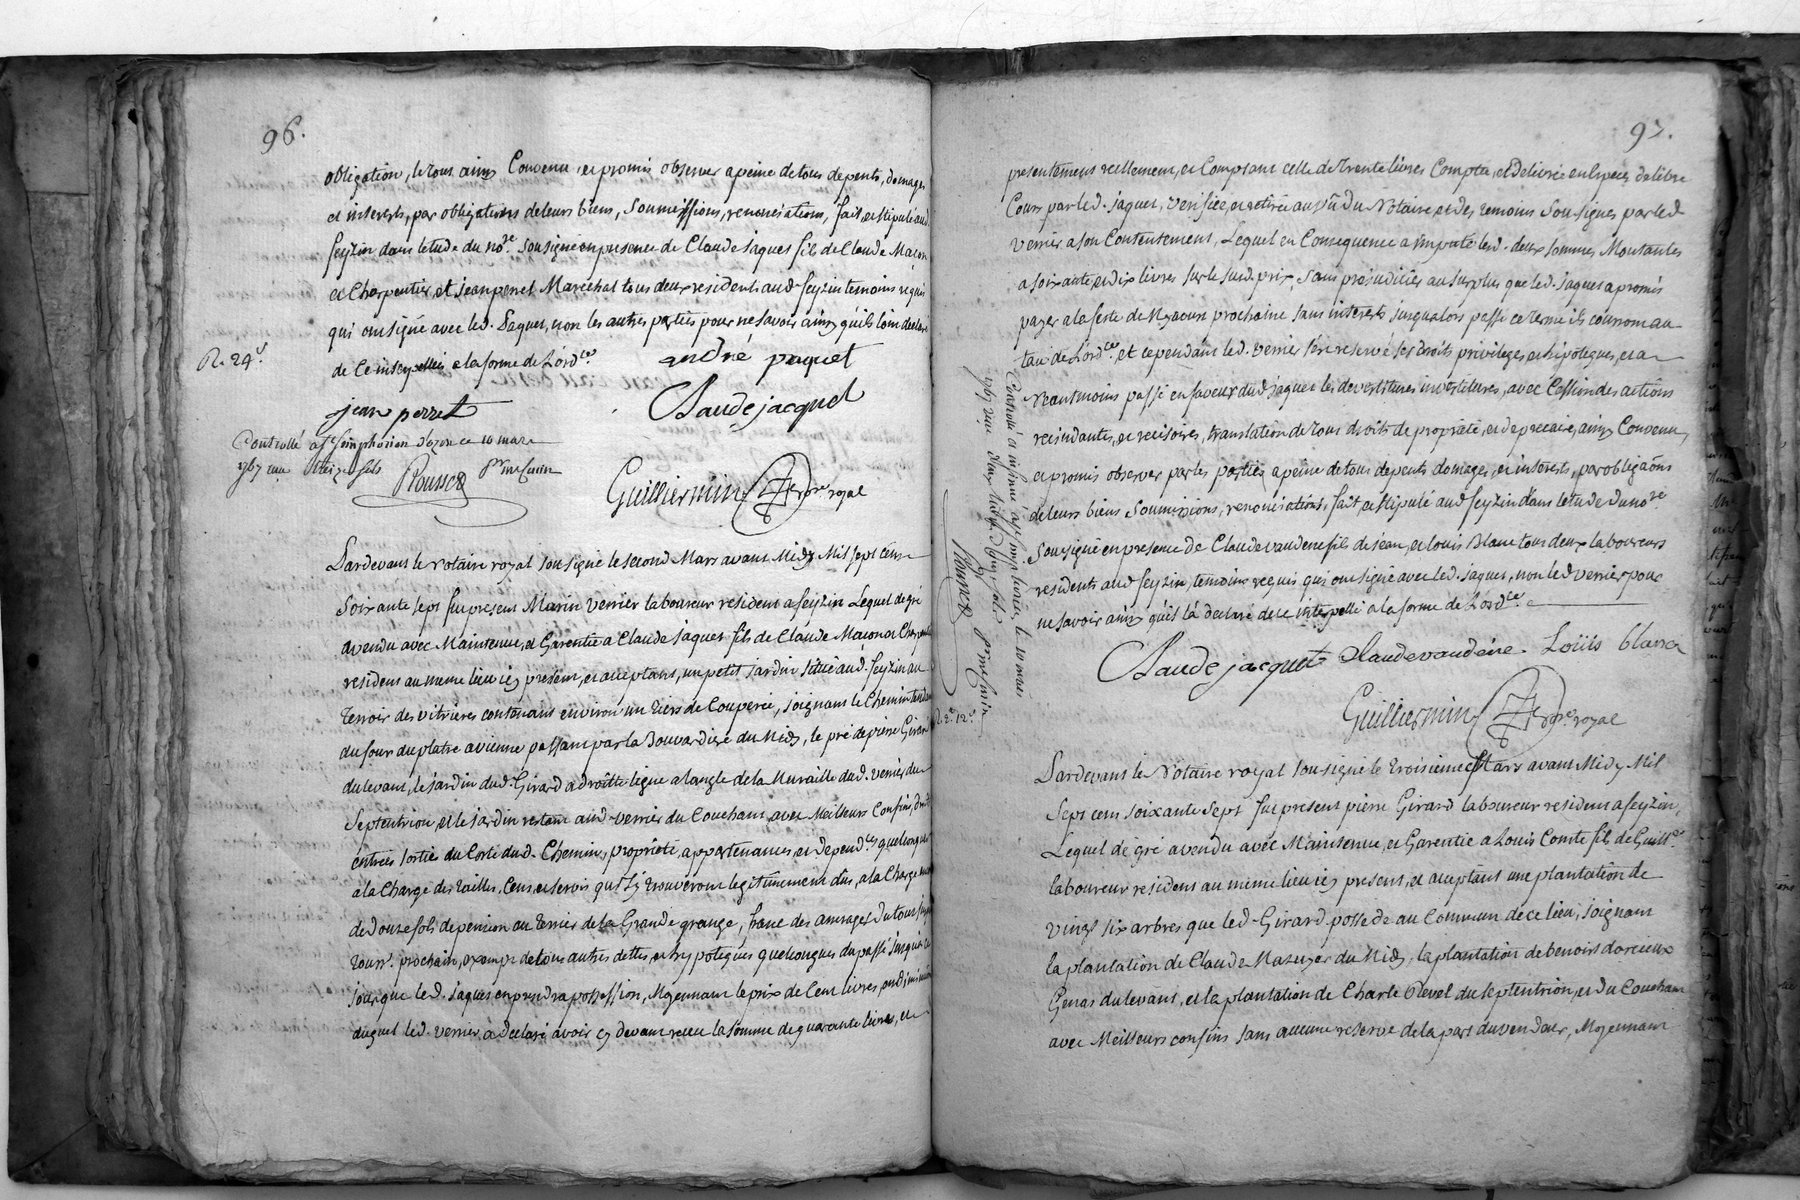 96.
obligation, le tout ainsy Convenu et promis observer a peine de tous depents, domages
et interests, par obligations de leurs biens, Soumissions, renonciations, fait et stipulé aud.
feyzin dans letude du no.re Soussigné en presence de Claude Jaques fils de Claude Maçon
et Charpentier, et Jean perret Maréchal tous deux residents aud feyzin temoins requis
qui ont signé avec led. Paquet, non les autres parties pour ne savoir ainsy quils l'ont declaré
de ce interpellés a la forme de Lord.ces
R. 24s.
andré paquet
jean perret
Claude jacquet
Controllé a St Simphorien d'ozon ce 10 mars
1767 reçu treize sols
Rousset pr me Guerin
Guilliermin no.re royal
Pardevant le Notaire royal soussigné le second Mars avant Midy Mil sept cens
Soixante sept fut present Marin Verrier laboureur resident a feyzin Lequel de gré
a vendu avec Maintenue, et Garentie a Claude Jaquet fils de Claude Macon et Charpentier
resident au meme lieu icy present, et acceptant, un petit jardin situé aud. feyzin au
terroir des vitrieres contenant environ un tiers de Couperée, joignant le Chemin tendant
du four du platre a vienne passant par la Bouvardiere du Midy, le pré de pierre Girard
du levant, le jardin dud. Girard a droitte ligne a langle de la Muraille dud. verrier du
Septentrion, et le jardin restant aud verrier du Couchant, avec Meilleurs Confins, droits
entrées sorties du Coté dud. Chemin, proprieté, appartenances, et depend.ces quelconques
a la Charge des tailles, Cens, et servis qui s'y trouveront legitimement dus, a la Charge
de Douze sols de pension au terrier de la Grande grange, franc des arrerages du tout jusqu'a
touss.t prochain, exempt de tous autres dettes, et hypoteques quelconques du passé jusqu'a ce
jour que led. Jaques en prendra possession, Moyennant le prix de Cent livres,
duquel led. verrier a declaré avoir cy devant receu la somme de quarante livres, et
97.
presentement reellement, et Comptant celle de trente livres Comptée, et Delivrée en Especes de libre
Cours par led. jaquet, verifiée, et retirée au vû du Notaire, et des temoins Soussignés par led
verrier a son Contentement, Lequel en Consequence a imputé lesd. deux sommes Montantes
a soixante et dix livres sur le susd. prix sans prejudicier au surplus que led. jaquet a promis
payer a la feste de Nôel prochaine sans interests jusqualors passé ce terme ils couriront au
taux de Lord.ce et cependant led. verrier s'en reservé ses droits privileges, et hipoteques, et a
Neantmoins passé en faveur dud jaquet les devestitures investitures, avec Cession des actions
rescindantes, et rescisoires, translation de tous droits de proprieté, et de precaire, ainsy Convenu,
et promis observer par les parties a peine de tous depents domages, et interests, par obligaôns
de leurs biens Soumissions, renonciations, fait, et stipulé aud feyzin dans letude du no.re
Soussigné en presence de Claude vaudene fils de jean, et louis Blanc tous deux laboureurs
residents aud feyzin, temoins requis qui ont signé avec led. jaquet, non led verrier pour
ne savoir ainsy qu'il l'a declaré de ce interpellé a la forme de Lord.ce
Controllé et insinué a St Simph. le 10 mars
1767 reçu
Rousset pr me Guerin
R. 2.s 12.s
Claude jacquet Claude vaudéne. Louïs blanc
Guilliermin no.re royal
Pardevant le Notaire royal soussigné le troisieme Mars avant Midy Mil
Sept cens soixante Sept fut present pierre Girard laboureur resident a feyzin,
Lequel de gré a vendu avec Maintenue, et Garentie a Louis Comte fils de Guill.e
laboureur resident au meme lieu icy present, et acceptant une plantation de
vingt six arbres que led. Girard possede au Commun de ce lieu, joignant
la plantation de Claude Mazuyer du Midy, la plantation de benoist dorcieux
Genas du levant, et la plantation de Charle Revel du septentrion, et du Couchant
avec Meilleurs confins sans aucune reserve de la part du vendeur, Moyennant